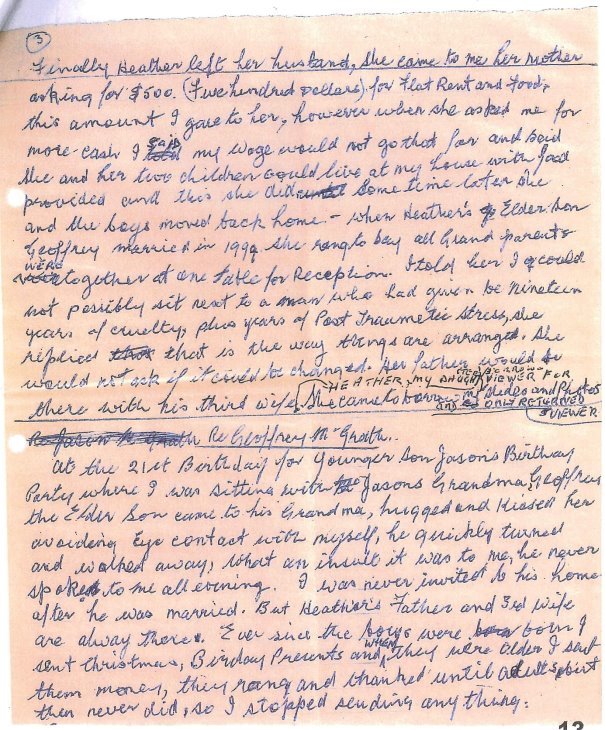 3
Finally Heather left her husband, she came to me her mother
asking for $500. (Five hundred dollars) for Flat Rent and Food,
this amount I gave to her, however when she asked me for
more cash I said my wage would not go that far and said
She and her two children could live at my house with food
provided and this she did some time later she
and the boys moved back home. - when Heather's Elder Son
Geoffrey married in 1999 she rang to say all Grand parents
WERE together at one table for Reception. I told her I could
not posibly sit next to a man who had given be nineteen
years of cruelty, plus years of Post Traumetic stress, she
replied that is the way things are arranged. She
would not ask if it could be changed. Her father would be
there with his third wife. She came to borrow
HEATHER, my DAUGHTER VIEWER FOR
my Slides and Photos
and ONLY RETURNED
VIEWER
Re Geoffrey McGrath.
At the 21st Birthday for Younger Son Jason's Birthday
Party where I was sitting with Jasons Grandma, Geoffrey
the Elder Son came to his Grandma, hugged and kissed her
avoiding Eye contact with myself, he quickly turned
and walked away, what an insult it was to me, he never
spoke to me all evening. I was never invited to his home
after he was married. But Heather's Father and 3rd wife
are alway there. Ever since the boys were born I
sent Christmas, Birday Presents and WHEN they were older I sent
them money, they rang and thanked until
then never did, so I stopped sending any thing.
13